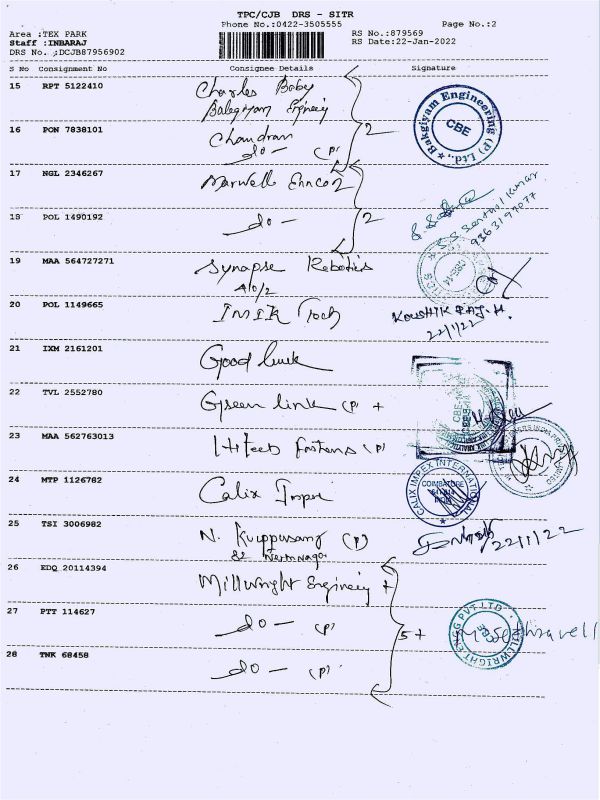 TPC/CJB DRS - SITR
Phone No.:0422-3505555
Page No.:2
Area :TEX PARK
RS No.:879569
Staff :INBARAJ
RS Date:22-Jan-2022
DRS No. ;DCJB87956902
S No Consignment No Consignee Details Signature
15 RPT 5122410 Charles Baby
16 PON 7838101 Chandran
do - (P) 2
Bakgiyam Engineering (P) Ltd., CBE
17 NGL 2346267
18 POL 1490192 do - 2
S.S. Senthil Kumar
9363199077
19 MAA 564727271 Synapse Robotics
20 POL 1149665
KOUSHIK RAJ. H.
22/1/22
21 IXM 2161201 Good luck
22 TVL 2552780 Green link (P) +
23 MAA 562763013 Hi (P)
24 MTP 1126782 Calix Impex
CALIX IMPEX INTERNATIONAL
COIMBATORE
25 TSI 3006982 N. Kuppusamy (P)
22/1/22
26 EDQ 20114394 Millwright Engineering +
27 PTT 114627 do - (P) 5+
MILLWRIGHT ENGG PVT.LTD
28 TNK 68458 do - (P)